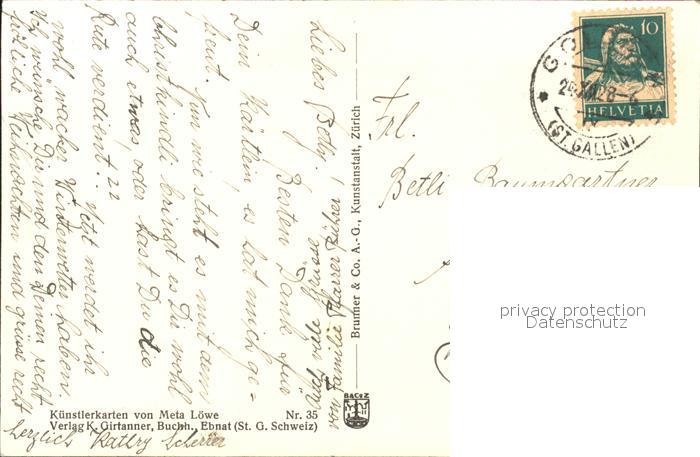 Liebes Betli!
Besten Dank für
Dein Kärtlein, es hat mich ge-
freut. Nun wie steht es mit dem
Christkindli bringt es Dir wohl
auch etwas, oder hast Du die
Rute verdient? Jetzt werdet ihr
wohl wacker Winterwetter haben.
Ich wünsche Dir und den Deinen recht
fröhliche Weihnachten und grüsse recht
herzlich Kathry Scherrer
von Familie Pfarrer
Künstlerkarten von Meta Löwe Nr. 35
Verlag K. Girtanner, Buchh., Ebnat (St. G. Schweiz)
Brunner & Co. A.-G., Kunstanstalt, Zürich
B&CoZ
Frl.
Betli Baumgartner
10
HELVETIA
(ST. GALLEN)
privacy protection
Datenschutz